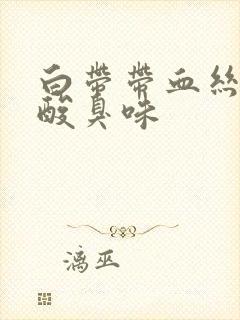 白带带血丝
酸臭味
漓巫